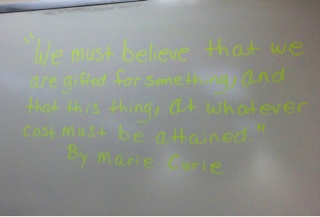 "We must believe that we
are gifted for something, and
that this thing, at whatever
cost, must be attained."
By Marie Curie